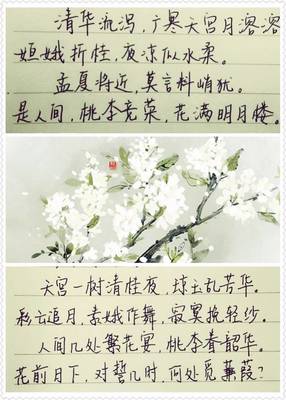 清华流泻，广寒天宫月溶溶
姮娥折桂，夜凉似水柔。
孟夏将近，莫言料峭犹。
是人间，桃李竞荣，花满明月楼。
天宫一树清桂夜，琼玉乱芳华。
彩云追月，素娥作舞，寂寞挽轻纱。
人间几处繁花宴，桃李春韶华。
花前月下，对誓几时，何处觅蒹葭？